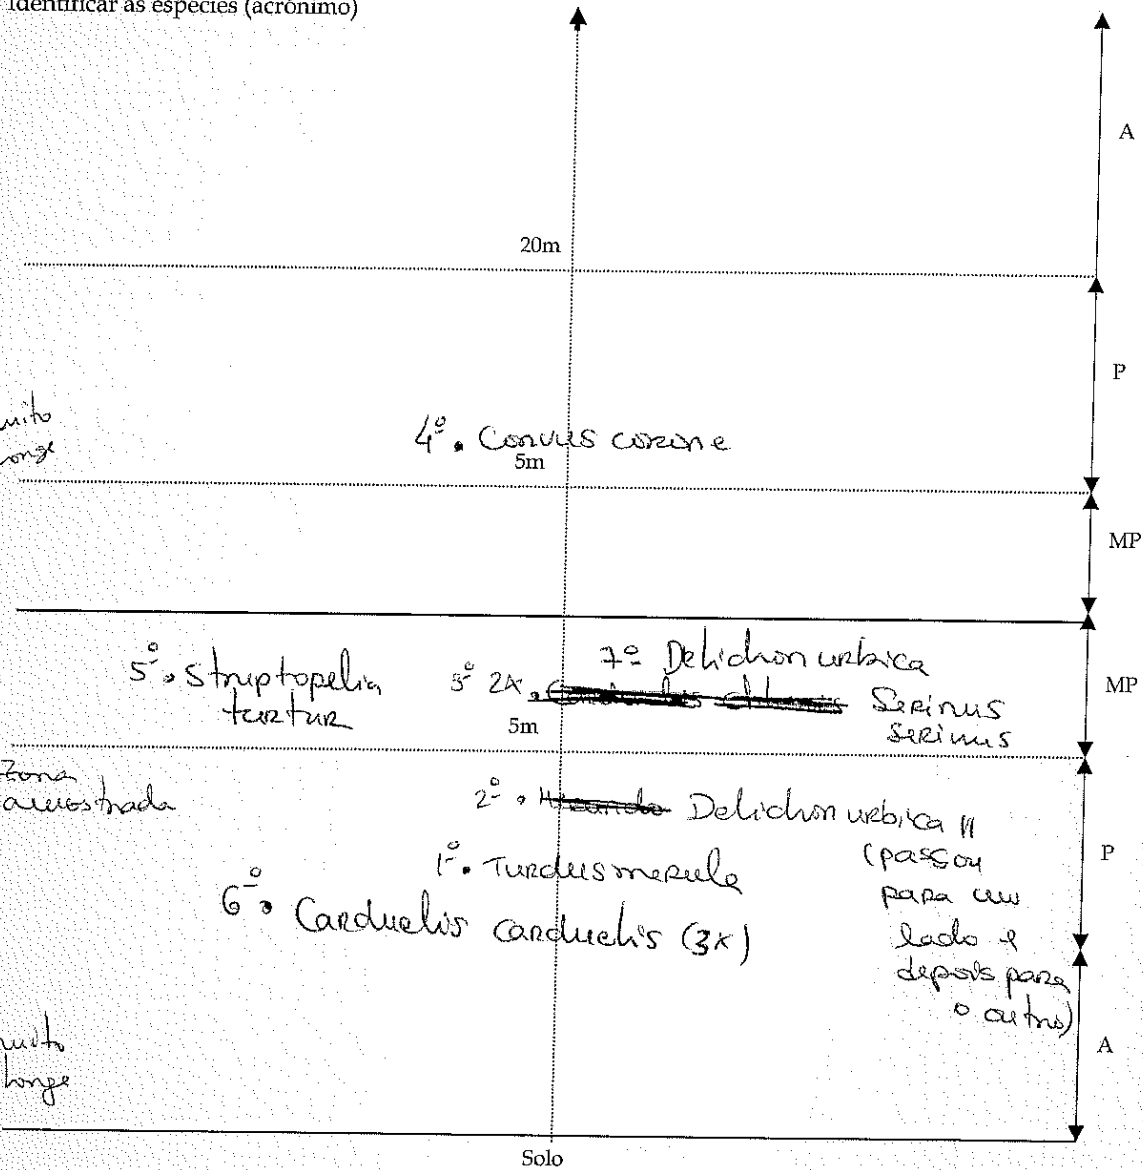 Identificar as espécies (acrónimo)
A
20m
P
muito
longe
4º. Corvus corone
5m
MP
7º Delichon urbica
5º. Streptopelia
turtur
3º 2x.
Serinus
serinus
MP
5m
Zona
amostrada
2º. Delichon urbica II
(passou
para um
lado e
depois para
o outro)
P
1º. Turdus merula
6º. Carduelis carduelis (3x)
muito
longe
A
Solo